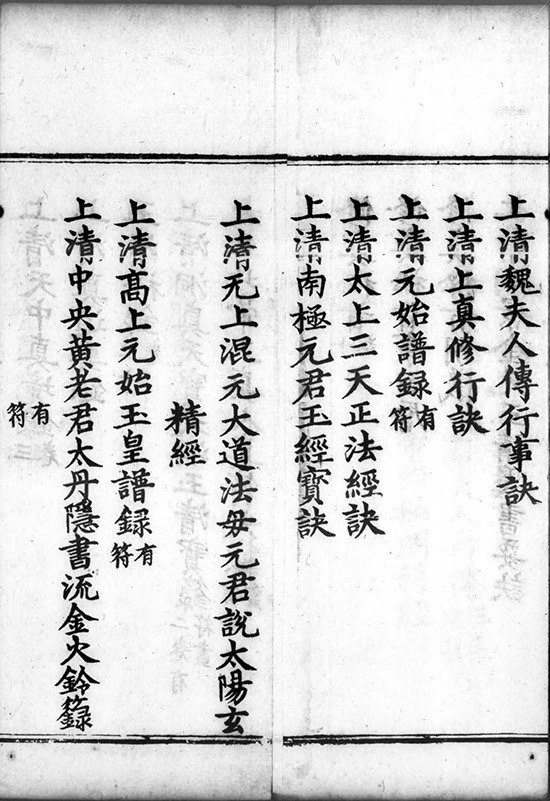 上清魏夫人傳行事訣
上清上真修行訣
上清元始譜録有符
上清太上三天正法經訣
上清南極元君玉經寶訣
上清元上混元大道法母元君說太陽玄
精經
上清髙上元始玉皇譜録有符
上清中央黃老君太丹隱書流金火鈴籙
有符